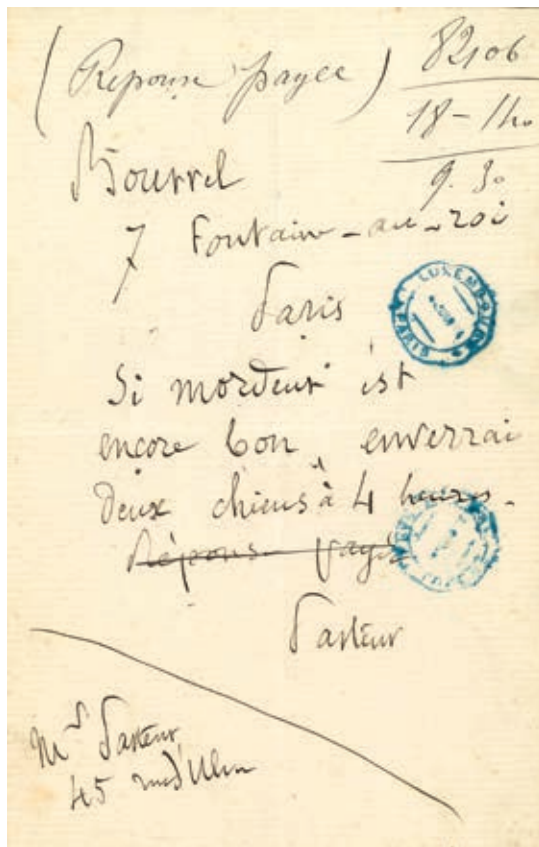 (Réponse payée) 82106
18 - 1 ho
9. 30
Bourrel
7 Fontaine-au-roi
Paris
LUXEMBOURG PARIS
Si mordeur est
encore bon, enverrai
deux chiens à 4 heures.
Réponse payée
Pasteur
Mr Pasteur
45 rue d'Ulm